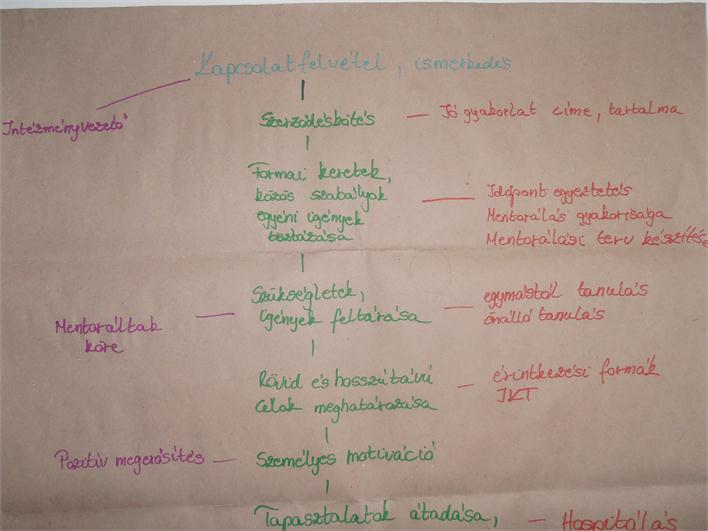 Kapcsolatfelvétel, ismerkedés
Intézményvezető
Szerződéskötés
Jó gyakorlat címe, tartalma
Formai keretek,
közös szabályok
egyéni igények
tisztázása
Időpont egyeztetés
Mentorálás gyakorisága
Mentorálási terv készítése
Szükségletek,
igények feltárása
egymástól tanulás
önálló tanulás
Mentoráltak
köre
Rövid és hosszútávú
célok meghatározása
érintkezési formák
IKT
Pozitív megerősítés
Személyes motiváció
Tapasztalatok átadása,
Hospitálás